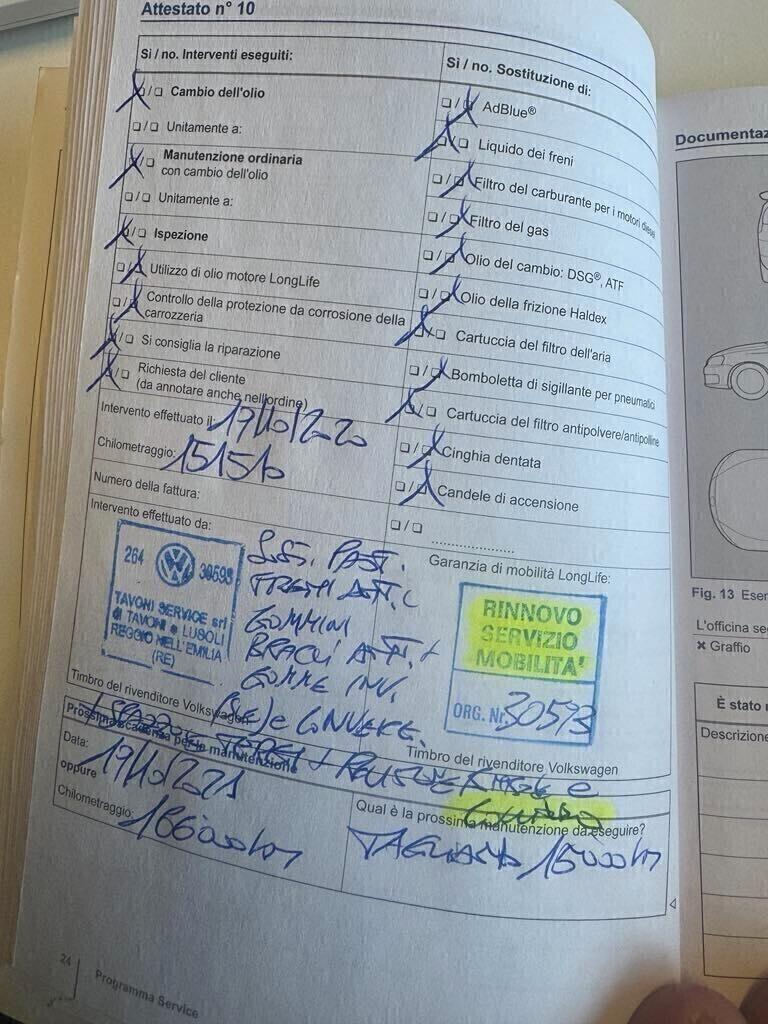 Attestato n° 10
Sì / no. Interventi eseguiti:
❏/❏ Cambio dell'olio
❏/❏ Unitamente a:
❏/❏ Manutenzione ordinaria
con cambio dell'olio
❏/❏ Unitamente a:
❏/❏ Ispezione
❏/❏ Utilizzo di olio motore LongLife
❏/❏ Controllo della protezione da corrosione della
carrozzeria
❏/❏ Si consiglia la riparazione
❏/❏ Richiesta del cliente
(da annotare anche nell'ordine)
Intervento effettuato il: 19/10/2020
Chilometraggio:
Numero della fattura:
Intervento effettuato da:
264 30593
TAVONI SERVICE srl
di TAVONI e LUSOLI
REGGIO NELL'EMILIA
(RE)
PAST.
FRENI ATT.
GOMMINI
BRACCI ATT. +
GOMME INV.
Timbro del rivenditore Volkswagen
Sì / no. Sostituzione di:
❏/❏ AdBlue®
❏/❏ Liquido dei freni
❏/❏ Filtro del carburante per i motori diesel
❏/❏ Filtro del gas
❏/❏ Olio del cambio: DSG®, ATF
❏/❏ Olio della frizione Haldex
❏/❏ Cartuccia del filtro dell'aria
❏/❏ Bomboletta di sigillante per pneumatici
❏/❏ Cartuccia del filtro antipolvere/antipolline
❏/❏ Cinghia dentata
❏/❏ Candele di accensione
❏/❏ ....................
Garanzia di mobilità LongLife:
RINNOVO
SERVIZIO
MOBILITA'
ORG. Nr. 30593
Timbro del rivenditore Volkswagen
Prossima scadenza per la manutenzione
Data: 19/10/2021
oppure
Chilometraggio: 166000 km
Qual è la prossima manutenzione da eseguire?
TAGLIANDO 15000 km
24
Programma Service
Documentaz
Fig. 13 Esen
L'officina se
✖ Graffio
È stato
Descrizione